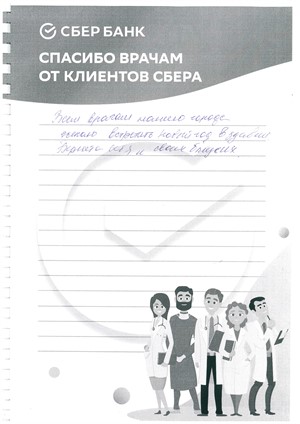 СБЕР БАНК
СПАСИБО ВРАЧАМ
ОТ КЛИЕНТОВ СБЕРА
Всем врачам нашего города
желаю встретить новый год в здравии
Берегите себя и своих близких